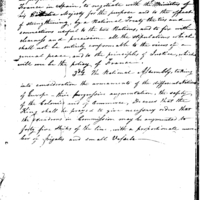 France in Spain, to negotiate with the Ministers of
his Catholic Majesty for this purpose and to the effect
of strengthening, by a National Treaty the ties and
connections useful to the two Nations, and to fix with
firmness and precision all the stipulations which
shall not be entirely conformable to the views of a
general peace, and to the principles of Justice, which
will ever be the policy of France.
3dly The National Assembly, taking
into consideration the armaments of the different Nations
of Europe, their progressive augmentation, the safety
of the Colonies and of Commerce, Decrees that the
King shall be prayed to give necessary orders that
the Squadrons in Commission may be augmented to
forty five ships of the line with a proportionate num
ber of frigates and small Vessels